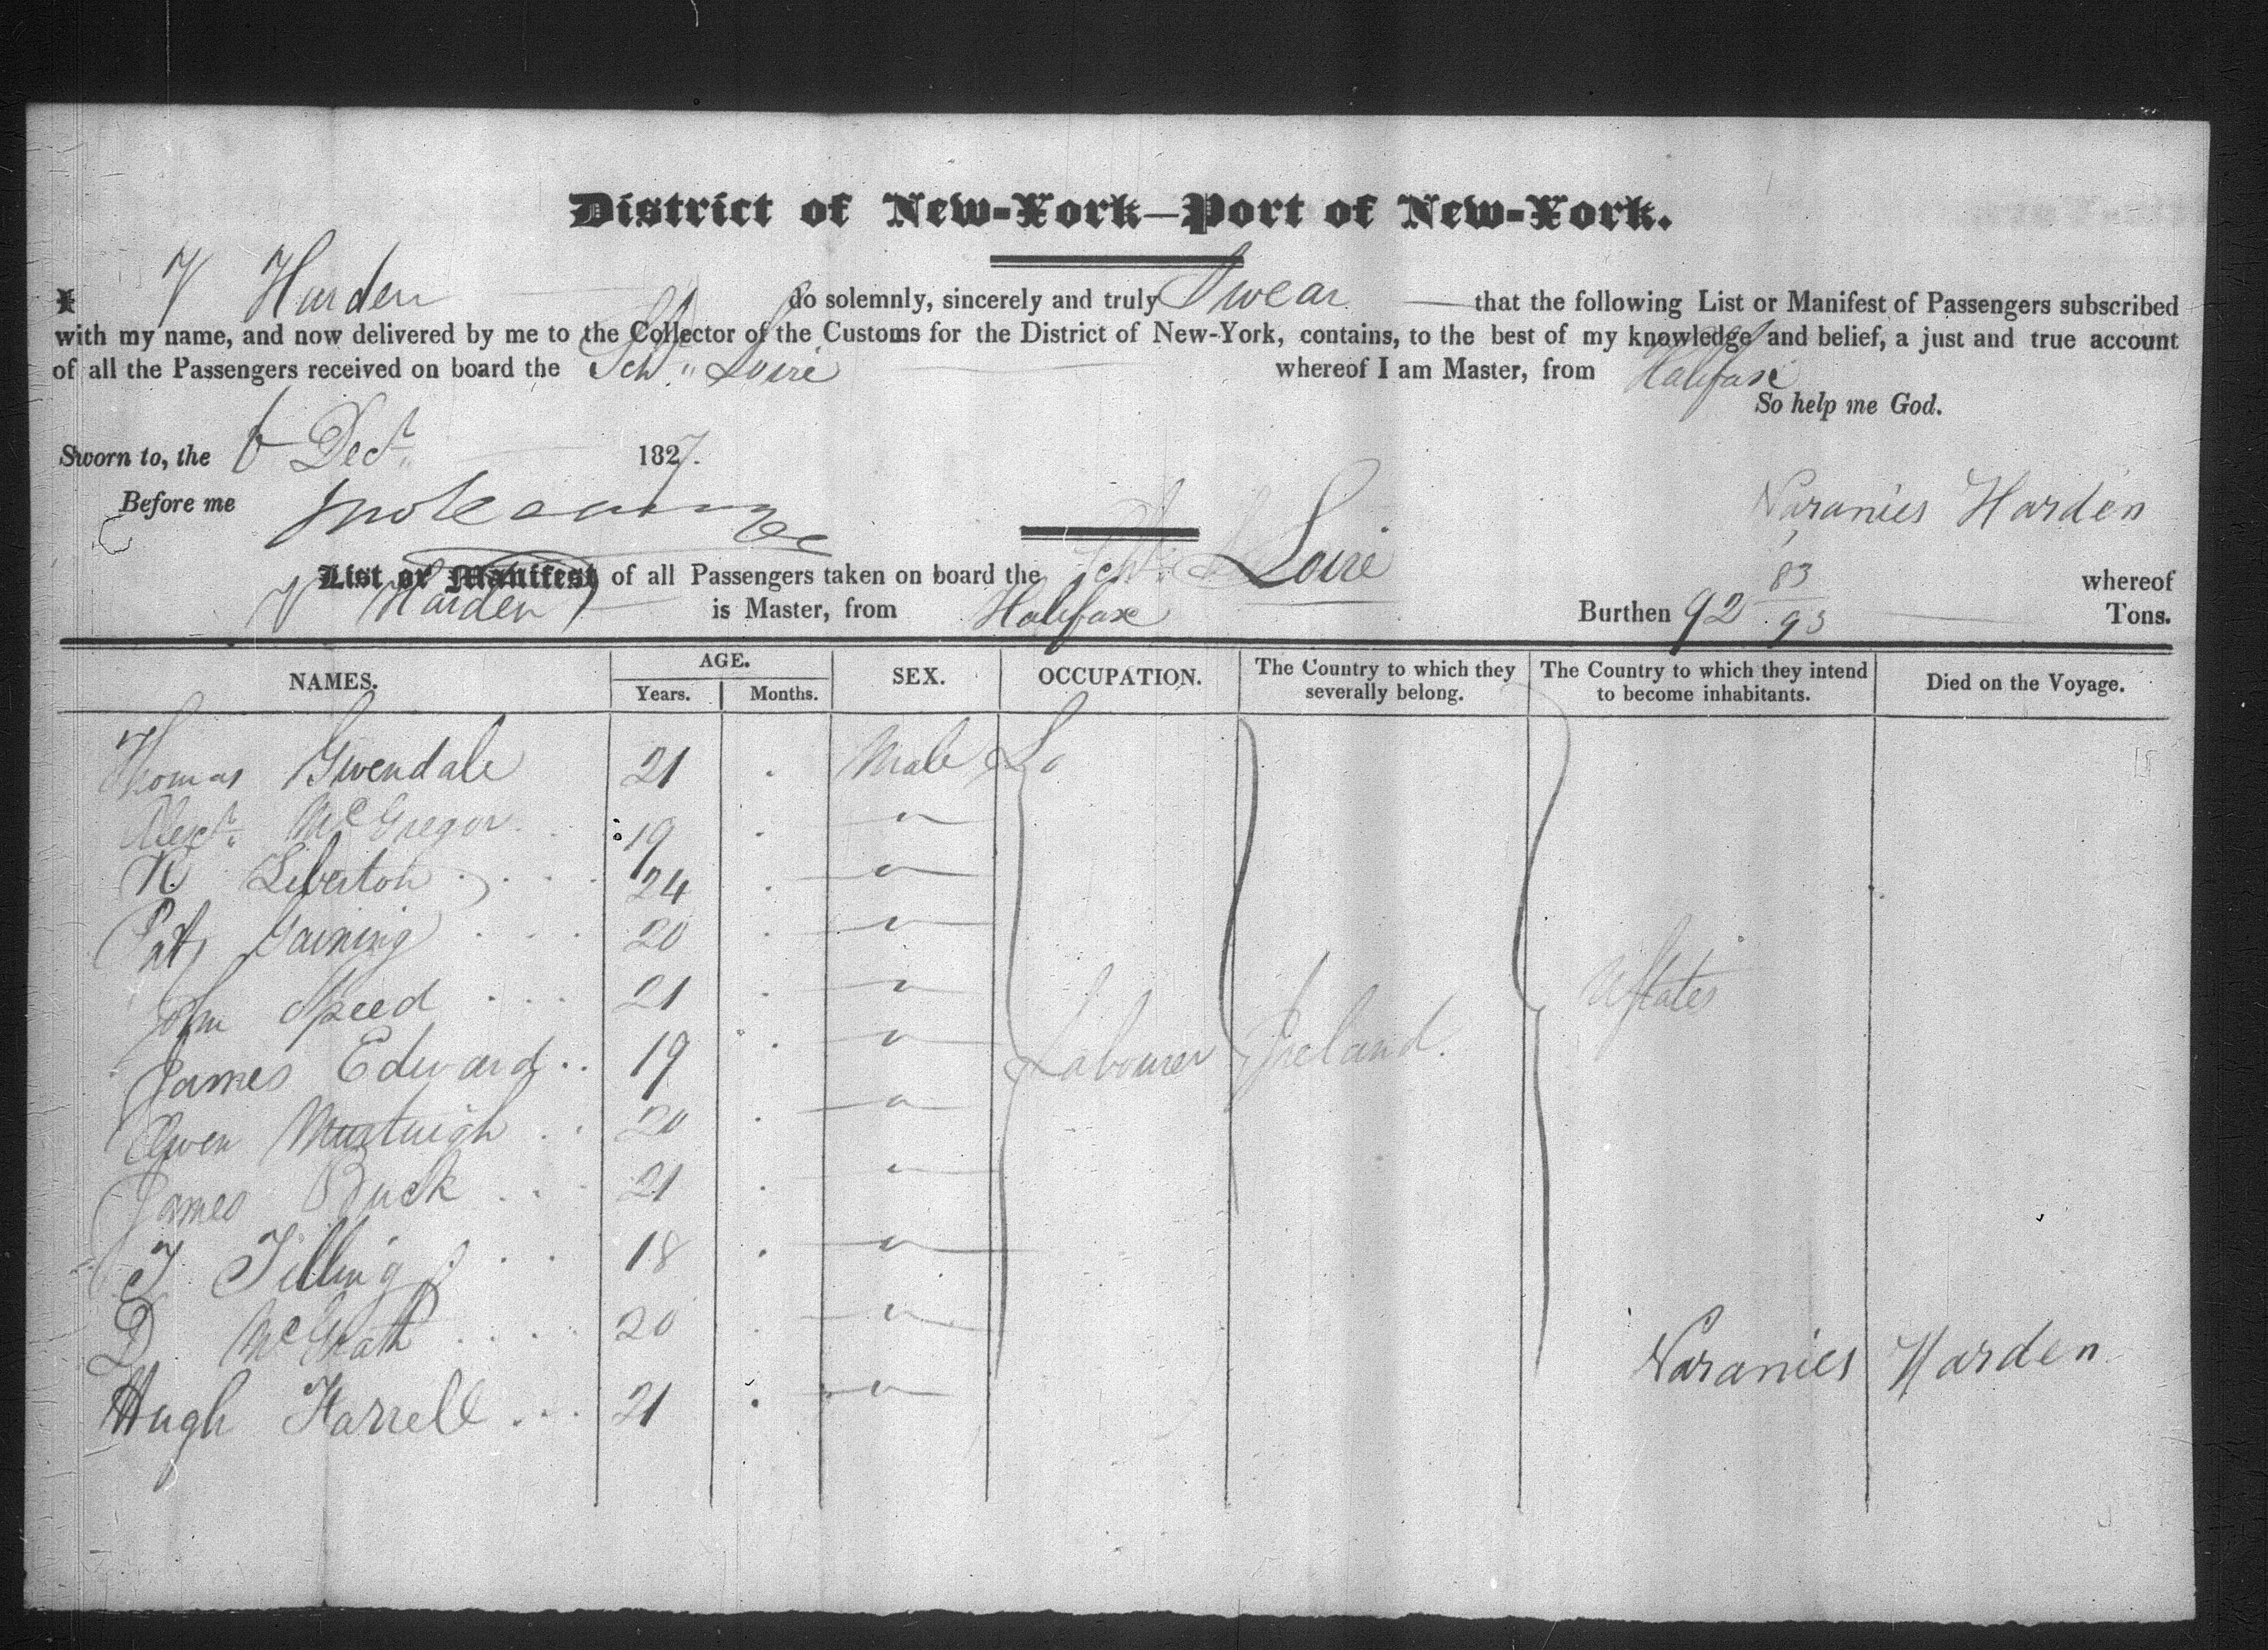 District of New-York—Port of New-York.
I V Harden do solemnly, sincerely and truly Swear that the following List or Manifest of Passengers subscribed
with my name, and now delivered by me to the Collector of the Customs for the District of New-York, contains, to the best of my knowledge and belief, a just and true account
of all the Passengers received on board the Schr Loire whereof I am Master, from Halifax
So help me God.
Sworn to, the 6 Decr 1827.
Before me
Naranies Harden
List or Manifest of all Passengers taken on board the Schr Loire whereof
V Harden is Master, from Halifax Burthen 92 83/95 Tons.
NAMES. AGE. Years. Months. SEX. OCCUPATION. The Country to which they severally belong. The Country to which they intend to become inhabitants. Died on the Voyage.
Thomas Gwendale 21 Male La
Alexr McGregor 19 "
N Liberton 24 "
Pat Gaining 20 "
John Speed 21 " UStates
James Edward 19 " Labourer Ireland.
Owen 20 "
James Buck 21 "
J Tilling 18 "
D McGrath 20 "
Naranies Harden
Hugh Farrell 21 "